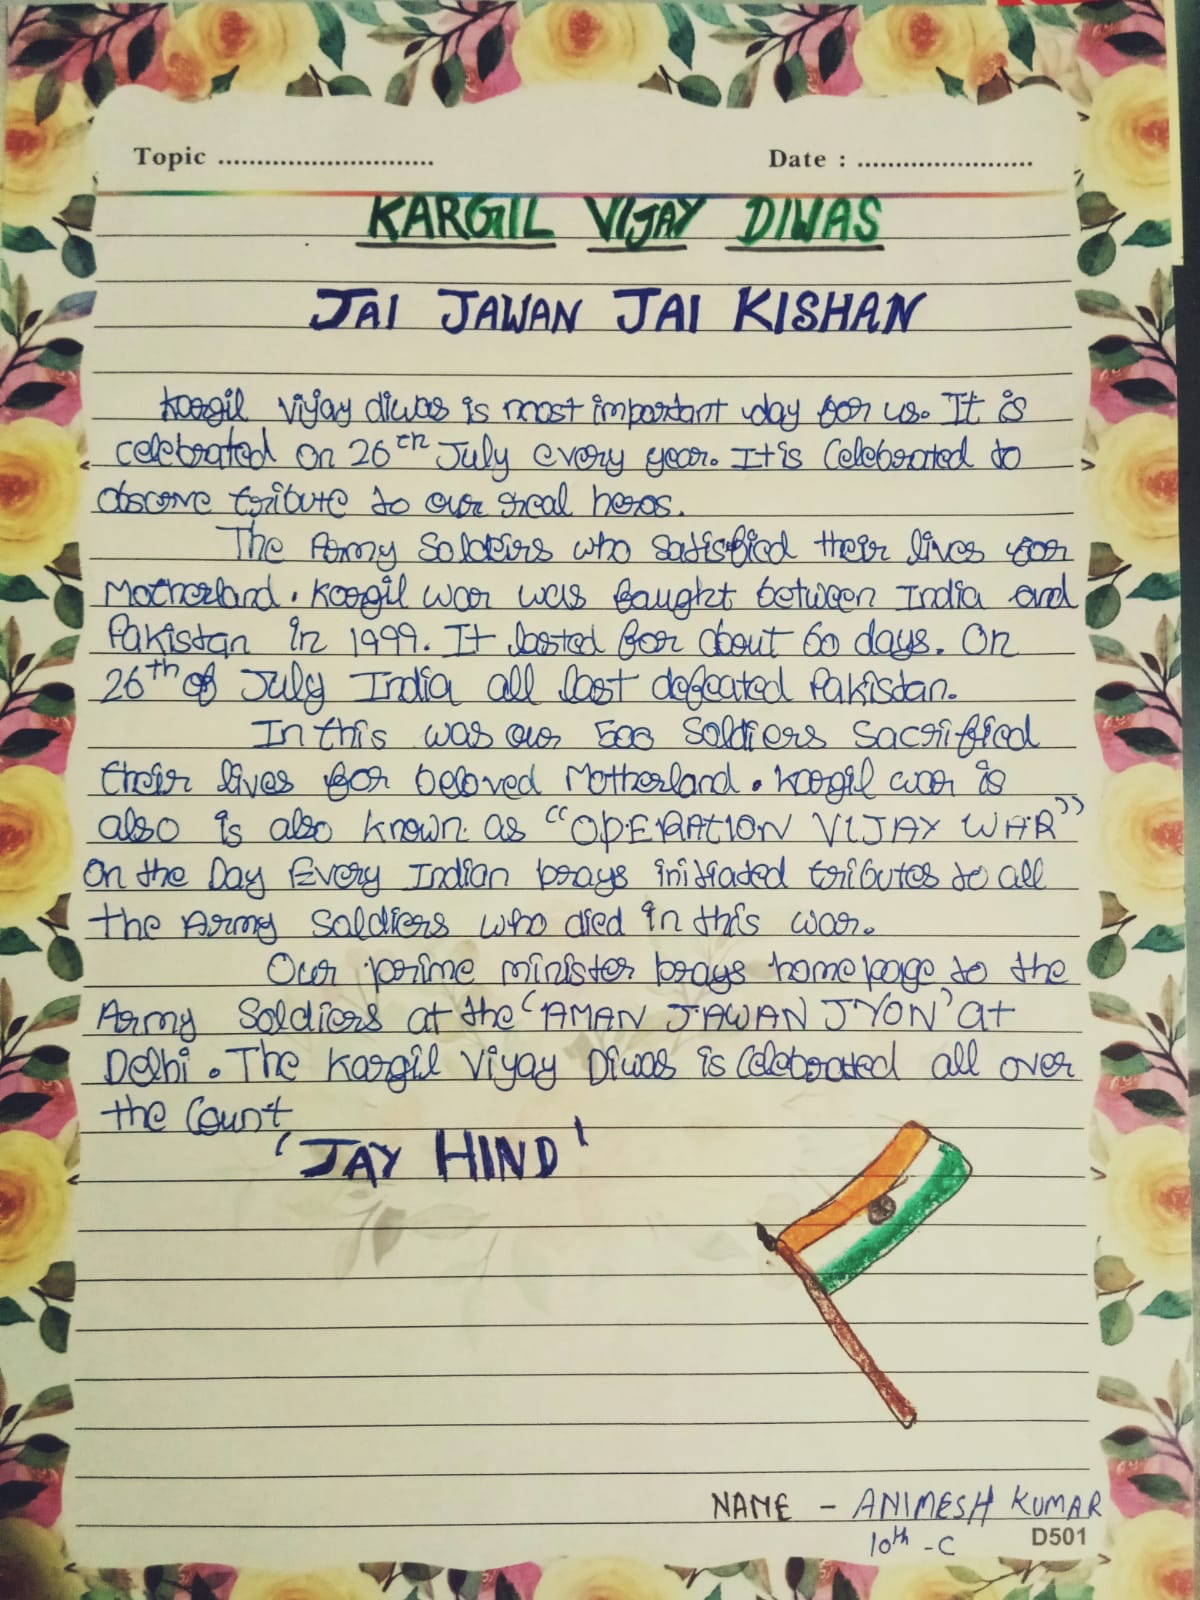 Topic ............................ Date : .......................
KARGIL VIJAY DIWAS
JAI JAWAN JAI KISHAN
Kargil Vijay diwas is most important day for us. It is
celebrated on 26th July every year. It is Celebrated to
obscrve tribute to our real heros.
The Army Soldeirs who satisfied their lives for
Motherland. Kargil war was faught between India and
Pakistan in 1999. It lasted for about 60 days. On
26th of July India all last defeated Pakistan.
In this was our 500 Soldiers Sacrificed
their lives for beloved Motherland. Kargil war is
also is also known as "OPERATION VIJAY WAR"
On the Day Every Indian prays initiated tributes to all
the Army Soldiers who died in this war.
Our prime minister prays homepage to the
Army Soldiers at the 'AMAN JAWAN JYON' at
Delhi. The Kargil Viyay Diwas is Celebrated all over
the Count
'JAY HIND'
NAME - ANIMESH KUMAR
10th -C D501